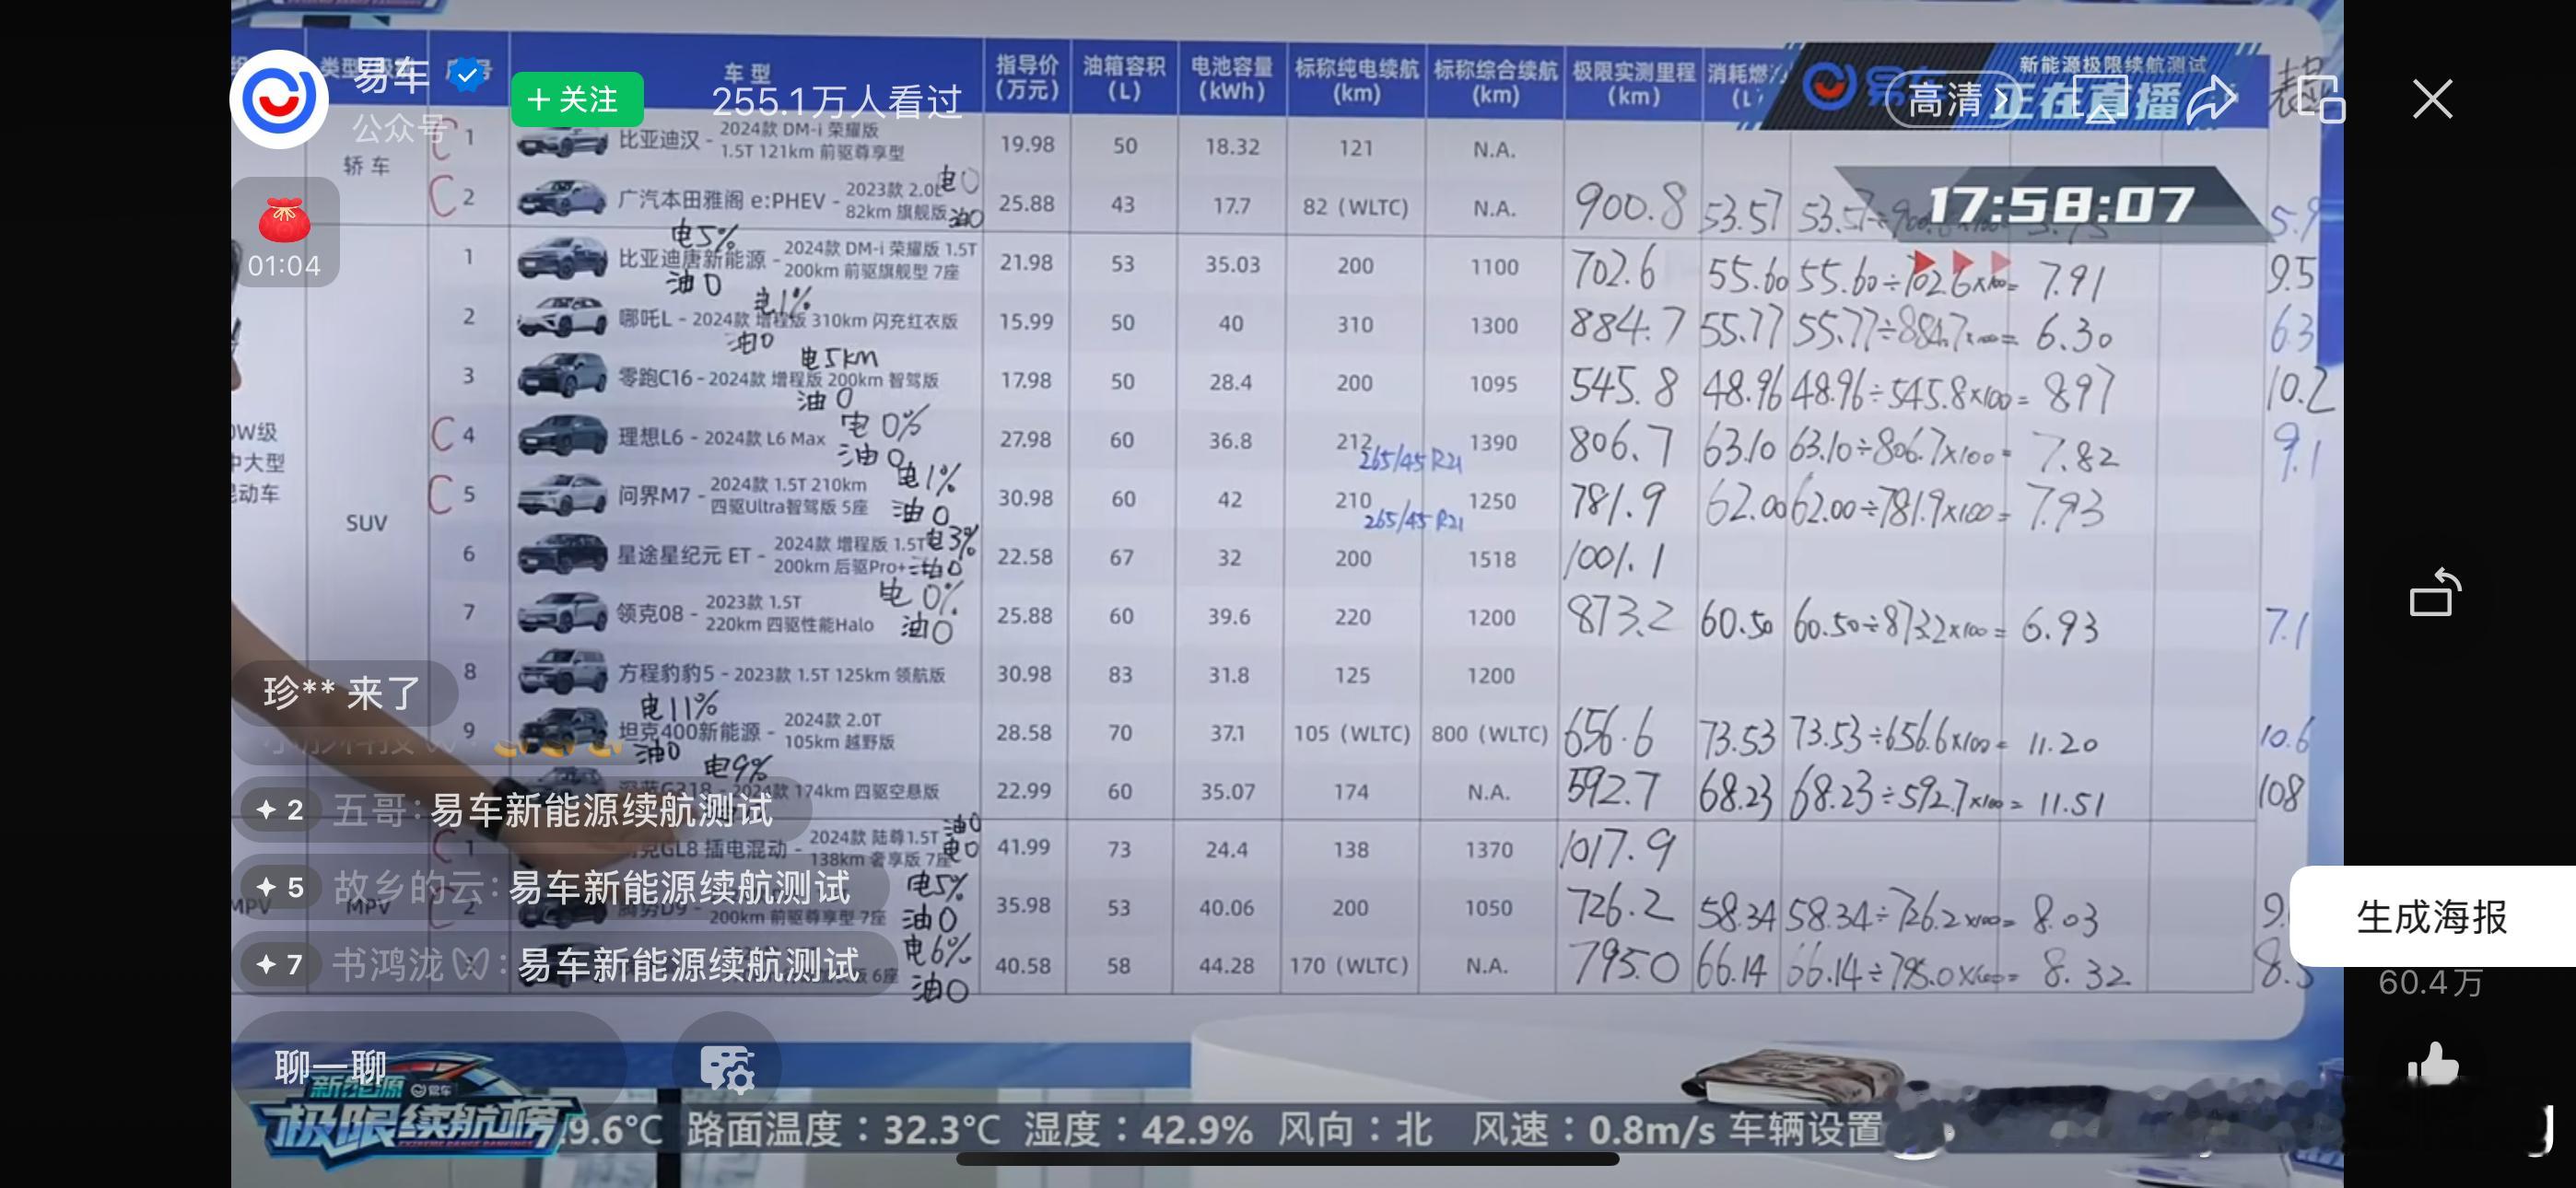 易车
公众号
+ 关注
255.1万人看过
高清 >
新能源极限续航测试
正在直播
17:58:07
01:04
车型 指导价(万元) 油箱容积(L) 电池容量(kWh) 标称纯电续航(km) 标称综合续航(km) 极限实测里程(km) 消耗燃
轿车
C 1 比亚迪汉 - 2024款 DM-i 荣耀版 1.5T 121km 前驱尊享型 19.98 50 18.32 121 N.A.
C 2 广汽本田雅阁 e:PHEV - 2023款 2.0L 82km 旗舰版 电0 油0 25.88 43 17.7 82 (WLTC) N.A. 900.8 53.57
SUV
1 比亚迪唐新能源 - 2024款 DM-i 荣耀版 1.5T 200km 前驱旗舰型 7座 电5% 油0 21.98 53 35.03 200 1100 702.6 55.60 55.60÷702.6×100= 7.91 9.5
2 哪吒L - 2024款 增程版 310km 闪充红衣版 电1% 油0 15.99 50 40 310 1300 884.7 55.77 55.77÷884.7×100= 6.30 6.3
3 零跑C16 - 2024款 增程版 200km 智驾版 电5km 油0 17.98 50 28.4 200 1095 545.8 48.96 48.96÷545.8×100= 8.97 10.2
C 4 理想L6 - 2024款 L6 Max 电0% 油0 27.98 60 36.8 212 265/45 R21 1390 806.7 63.10 63.10÷806.7×100= 7.82 9.1
C 5 问界M7 - 2024款 1.5T 210km 四驱Ultra智驾版 5座 电1% 油0 30.98 60 42 210 265/45 R21 1250 781.9 62.00 62.00÷781.9×100= 7.93
6 星途星纪元 ET - 2024款 增程版 1.5T 200km 后驱Pro+ 电3% 油0 22.58 67 32 200 1518 1001.1
7 领克08 - 2023款 1.5T 220km 四驱性能Halo 电0% 油0 25.88 60 39.6 220 1200 873.2 60.50 60.50÷873.2×100= 6.93 7.1
8 方程豹豹5 - 2023款 1.5T 125km 领航版 30.98 83 31.8 125 1200
9 坦克400新能源 - 2024款 2.0T 105km 越野版 电11% 油0 28.58 70 37.1 105 (WLTC) 800 (WLTC) 656.6 73.53 73.53÷656.6×100= 11.20 10.6
2024款 174km 四驱空悬版 电9% 22.99 60 35.07 174 N.A. 592.7 68.23 68.23÷592.7×100= 11.51 108
MPV
C 1 GL8 插电混动 - 2024款 陆尊1.5T 138km 奢享版 7座 油0 电0 41.99 73 24.4 138 1370 1017.9
C 2 腾势D9 - 200km 前驱尊享型 7座 电5% 油0 35.98 53 40.06 200 1050 726.2 58.34 58.34÷726.2×100= 8.03
6座 电6% 油0 40.58 58 44.28 170 (WLTC) N.A. 795.0 66.14 66.14÷795.0×100= 8.32
珍** 来了
2 五哥: 易车新能源续航测试
5 故乡的云: 易车新能源续航测试
7 书鸿泷: 易车新能源续航测试
聊一聊
生成海报
60.4万
新能源 易车
极限续航榜
9.6°C 路面温度：32.3°C 湿度：42.9% 风向：北 风速：0.8m/s 车辆设置